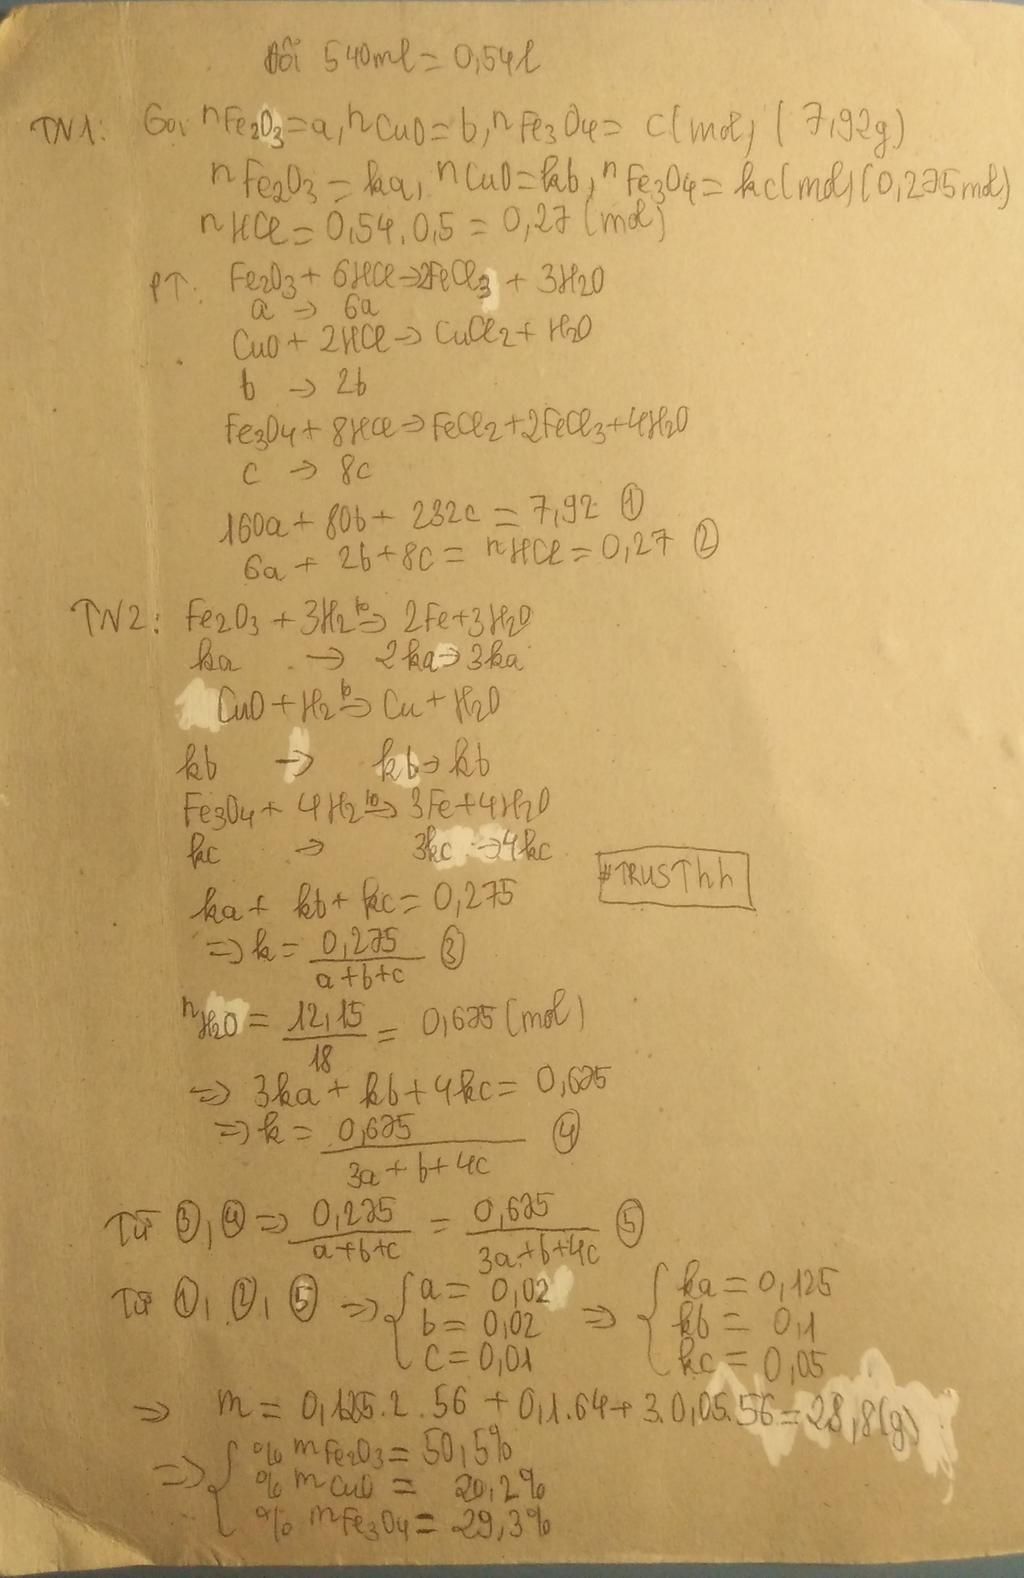 Đổi 540ml = 0,54l
TN1: Gọi nFe2O3 = a, nCuO = b, nFe3O4 = c(mol) (7,92g)
nFe2O3 = ka, nCuO = kb, nFe3O4 = kc(mol) (0,275mol)
nHCl = 0,54.0,5 = 0,27 (mol)
PT: Fe2O3 + 6HCl → 2FeCl3 + 3H2O
a → 6a
CuO + 2HCl → CuCl2 + H2O
b → 2b
Fe3O4 + 8HCl → FeCl2 + 2FeCl3 + 4H2O
c → 8c
160a + 80b + 232c = 7,92 ①
6a + 2b + 8c = nHCl = 0,27 ②
TN2: Fe2O3 + 3H2 to→ 2Fe + 3H2O
ka → 2ka → 3ka
CuO + H2 to→ Cu + H2O
kb → kb → kb
Fe3O4 + 4H2 to→ 3Fe + 4H2O
kc → 3kc → 4kc
#TRUSThh
ka + kb + kc = 0,275
=> k = 0,275 / a+b+c ③
nH2O = 12,15 / 18 = 0,675 (mol)
=> 3ka + kb + 4kc = 0,675
=> k = 0,675 / 3a + b + 4c ④
Từ ③, ④ => 0,275 / a+b+c = 0,675 / 3a+b+4c ⑤
Từ ①, ②, ⑤ => { a = 0,02 => { ka = 0,125
b = 0,02 kb = 0,1
c = 0,01 kc = 0,05
=> m = 0,125.2.56 + 0,1.64 + 3.0,05.56 = 28,8(g)
=> { % mFe2O3 = 50,5%
% mCuO = 20,2%
% mFe3O4 = 29,3%